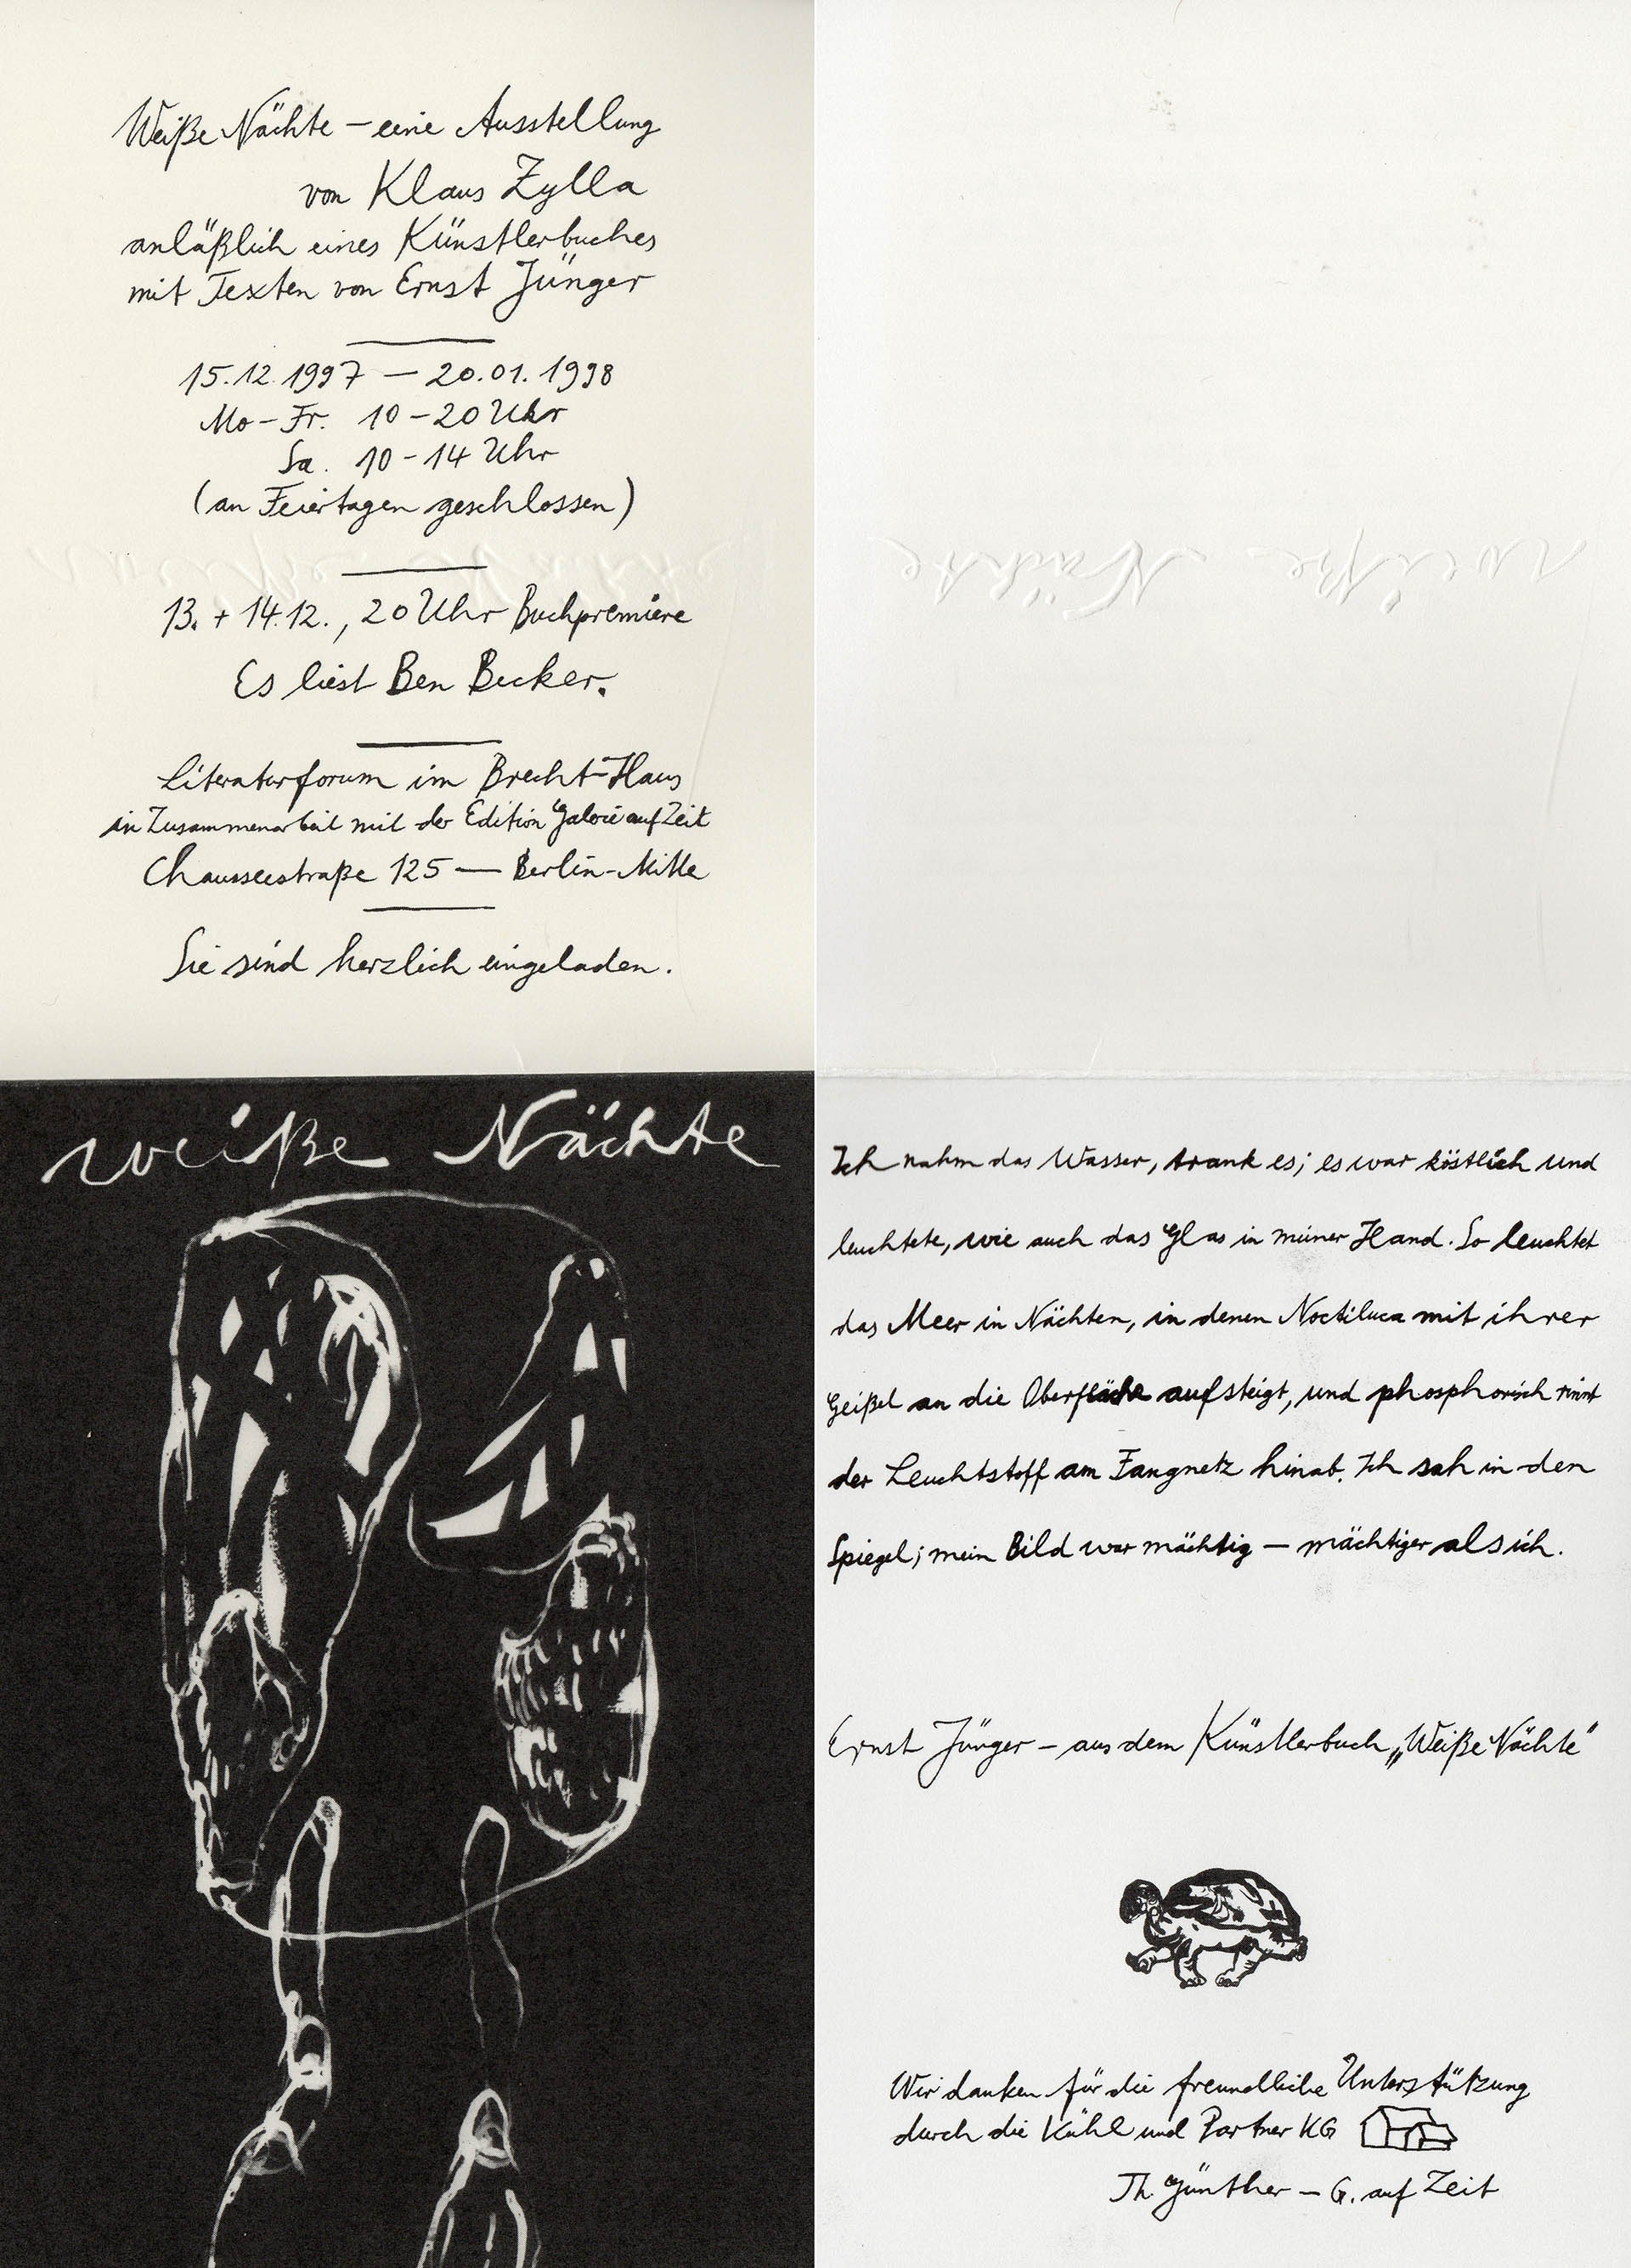 Weiße Nächte – eine Ausstellung
von Klaus Zylla
anläßlich eines Künstlerbuches
mit Texten von Ernst Jünger
15.12.1997 – 20.01.1998
Mo – Fr. 10 – 20 Uhr
Sa. 10 – 14 Uhr
(an Feiertagen geschlossen)
13. + 14.12., 20 Uhr Buchpremiere
Es liest Ben Becker.
Literaturforum im Brecht-Haus
in Zusammenarbeit mit der Edition Galerie auf Zeit
Chausseestraße 125 — Berlin-Mitte
Sie sind herzlich eingeladen.
weiße Nächte
weiße Nächte
Ich nahm das Wasser, trank es; es war köstlich und
leuchtete, wie auch das Glas in meiner Hand. So leuchtet
das Meer in Nächten, in denen Noctiluca mit ihrer
Geißel an die Oberfläche aufsteigt, und phosphorisch rinnt
der Leuchtstoff am Fangnetz hinab. Ich sah in den
Spiegel; mein Bild war mächtig — mächtiger als ich.
Ernst Jünger – aus dem Künstlerbuch „Weiße Nächte"
Wir danken für die freundliche Unterstützung
durch die Kühl und Partner KG
Th. Günther – G. auf Zeit